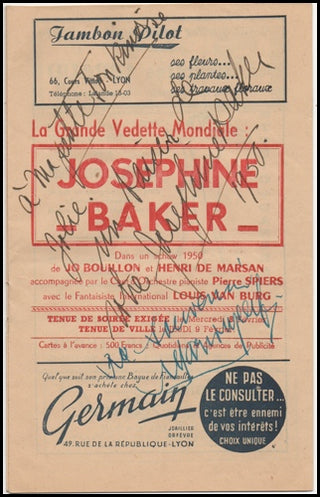 Jambon Dilot
ses fleurs...
ses plantes...
ses travaux floraux
66, Cours — LYON
Téléphone : Lalande 15-03
La Grande Vedette Mondiale :
JOSEPHINE
– BAKER –
Dans un show 1950
de JO BOUILLON et HENRI DE MARSAN
accompagnée par le Orchestre pianiste Pierre SPIERS
avec le Fantaisiste International LOUIS VAN BURG
TENUE DE SOIRÉE EXIGÉE le Mercredi 8 Février
TENUE DE VILLE le JEUDI 9 Février
Cartes à l'avance : 500 Francs : Quotidiens Agences de Publicité
à ma petite
Jolie.
un
Joséphine Baker
1950.
Quel que soit son prix une Bague de Fiançailles
s'achète chez
Germain
JOAILLIER
ORFÈVRE
49, RUE DE LA RÉPUBLIQUE - LYON
NE PAS
LE CONSULTER...
c'est être ennemi
de vos intérêts!
CHOIX UNIQUE